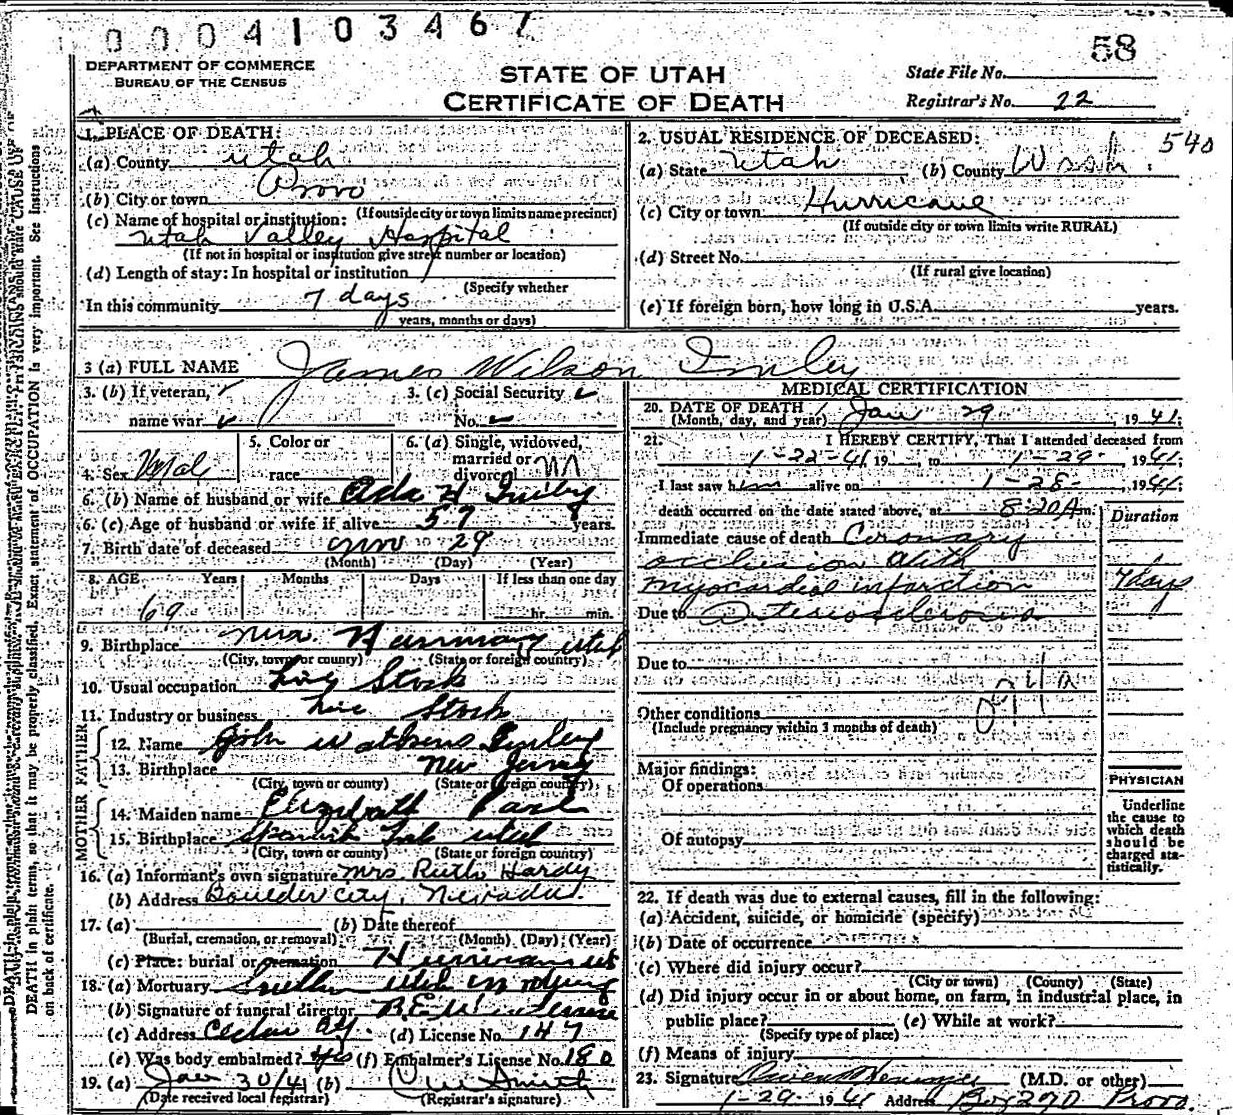 0004103467
58
DEPARTMENT OF COMMERCE
BUREAU OF THE CENSUS
STATE OF UTAH
CERTIFICATE OF DEATH
State File No.
Registrar's No. 22
1. PLACE OF DEATH:
(a) County Utah
(b) City or town Provo
(If outside city or town limits name precinct)
(c) Name of hospital or institution:
Utah Valley Hospital
(If not in hospital or institution give street number or location)
(d) Length of stay: In hospital or institution
(Specify whether
In this community 7 days
years, months or days)
2. USUAL RESIDENCE OF DECEASED:
540
(a) State Utah (b) County Wash
(c) City or town Hurricane
(If outside city or town limits write RURAL)
(d) Street No.
(If rural give location)
(e) If foreign born, how long in U.S.A. years.
3 (a) FULL NAME James Wilson Imley
3. (b) If veteran,
name war
3. (c) Social Security
No.
4. Sex Male
5. Color or
race
6. (a) Single, widowed,
married or
divorced M
6. (b) Name of husband or wife Ada H Imley
6. (c) Age of husband or wife if alive 57 years.
7. Birth date of deceased 29
(Month) (Day) (Year)
8. AGE Years Months Days If less than one day
69 hr. min.
9. Birthplace Utah
(City, town or county) (State or foreign country)
10. Usual occupation Live Stock
11. Industry or business Live Stock
FATHER
12. Name John Imley
13. Birthplace New Jersey
(City, town or county) (State or foreign country)
MOTHER
14. Maiden name Elizabeth
15. Birthplace Spanish Fork Utah
(City, town or county) (State or foreign country)
16. (a) Informant's own signature Mrs. Ruth Hardy
(b) Address Boulder City, Nevada.
17. (a) (b) Date thereof
(Burial, cremation, or removal) (Month) (Day) (Year)
(c) Place: burial or cremation Hurricane Ut
18. (a) Mortuary
(b) Signature of funeral director
(c) Address Cedar (d) License No. 147
(e) Was body embalmed? Yes (f) Embalmer's License No. 180
19. (a) Jan 30/41 (b) Smith
(Date received local registrar) (Registrar's signature)
MEDICAL CERTIFICATION
20. DATE OF DEATH Jan 29 1941
(Month, day, and year)
21. I HEREBY CERTIFY, That I attended deceased from
1-22-41 19 , to 1-29- 1941;
I last saw him alive on 1-28- , 1941;
death occurred on the date stated above, at 8:20 A m.
Duration
Immediate cause of death Coronary
occlusion with
myocardial infarction 7 days
Due to Arteriosclerosis
Due to
Other conditions
(Include pregnancy within 3 months of death)
Major findings:
Of operations
Of autopsy
PHYSICIAN
Underline
the cause to
which death
should be
charged sta-
tistically.
22. If death was due to external causes, fill in the following:
(a) Accident, suicide, or homicide (specify)
(b) Date of occurrence
(c) Where did injury occur?
(City or town) (County) (State)
(d) Did injury occur in or about home, on farm, in industrial place, in
public place? (e) While at work?
(Specify type of place)
(f) Means of injury
23. Signature (M.D. or other)
1-29- 1941 Address Box 270 Provo
DEATH in plain terms, so that it may be properly classified. Exact statement of OCCUPATION is very important. See Instructions
on back of certificate.